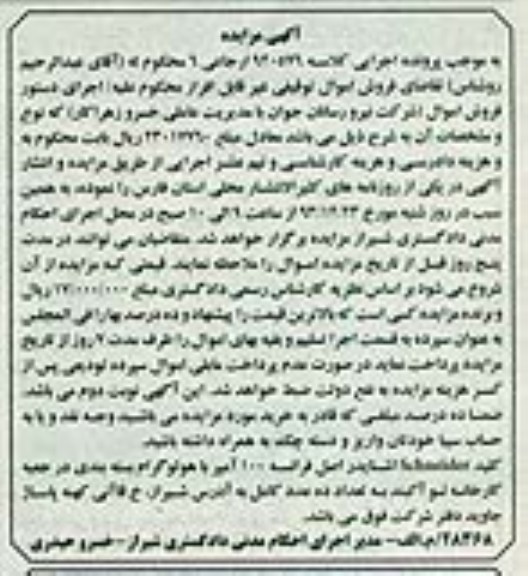 آگهی مزایده
به موجب پرونده اجرایی کلاسه ۹۳۰۵۷۹ اجرایی ۶ محکوم له (آقای عبدالرحیم
روشناس) تقاضای فروش اموال توقیفی غیر قابل افراز محکوم علیه/ اجرای دستور
فروش اموال (شرکت نیرو رسانان جوان با مدیریت عاملی خسرو زهرا کار) که نوع
و مشخصات آن به شرح ذیل می باشد معادل مبلغ ریال بابت محکوم به
و هزینه دادرسی و هزینه کارشناسی و نیم عشر اجرایی از طریق مزایده و انتشار
آگهی در یکی از روزنامه های کثیرالانتشار محلی استان فارس را نموده، به همین
سبب در روز شنبه مورخ ۹۳/۱۲/۲۳ از ساعت ۹ الی ۱۰ صبح در محل اجرای احکام
مدنی دادگستری شیراز مزایده برگزار خواهد شد. متقاضیان می توانند در مدت
پنج روز قبل از تاریخ مزایده اموال را ملاحظه نمایند. قیمتی که مزایده از آن
شروع می شود بر اساس نظریه کارشناس رسمی دادگستری مبلغ ریال
و برنده مزایده کسی است که بالاترین قیمت را پیشنهاد و ده درصد بهارا فی المجلس
به عنوان سپرده به قسمت اجرا تسلیم و بقیه بهای اموال را ظرف مدت ۷ روز از تاریخ
مزایده پرداخت نماید در صورت عدم پرداخت مابقی اموال سپرده تودیعی پس از
کسر هزینه مزایده به نفع دولت ضبط خواهد شد. این آگهی نوبت دوم می باشد.
ضمنا ده درصد مبلغی که قادر به خرید مورد مزایده می باشید وجه نقد و یا به
حساب سپا خودتان واریز و دسته چک به همراه داشته باشید.
کلید Schneider اشنایدر اصل فرانسه ۱۰۰ آمپر با هولوگرام بسته بندی در جعبه
کارخانه نو آکبند به تعداد ده عدد کامل به آدرس شیراز، خ قاآنی کهنه پاساژ
جاوید دفتر شرکت فوق می باشد.
۲۸۴۶۸/م.الف- مدیر اجرای احکام مدنی دادگستری شیراز-خسرو حیدری